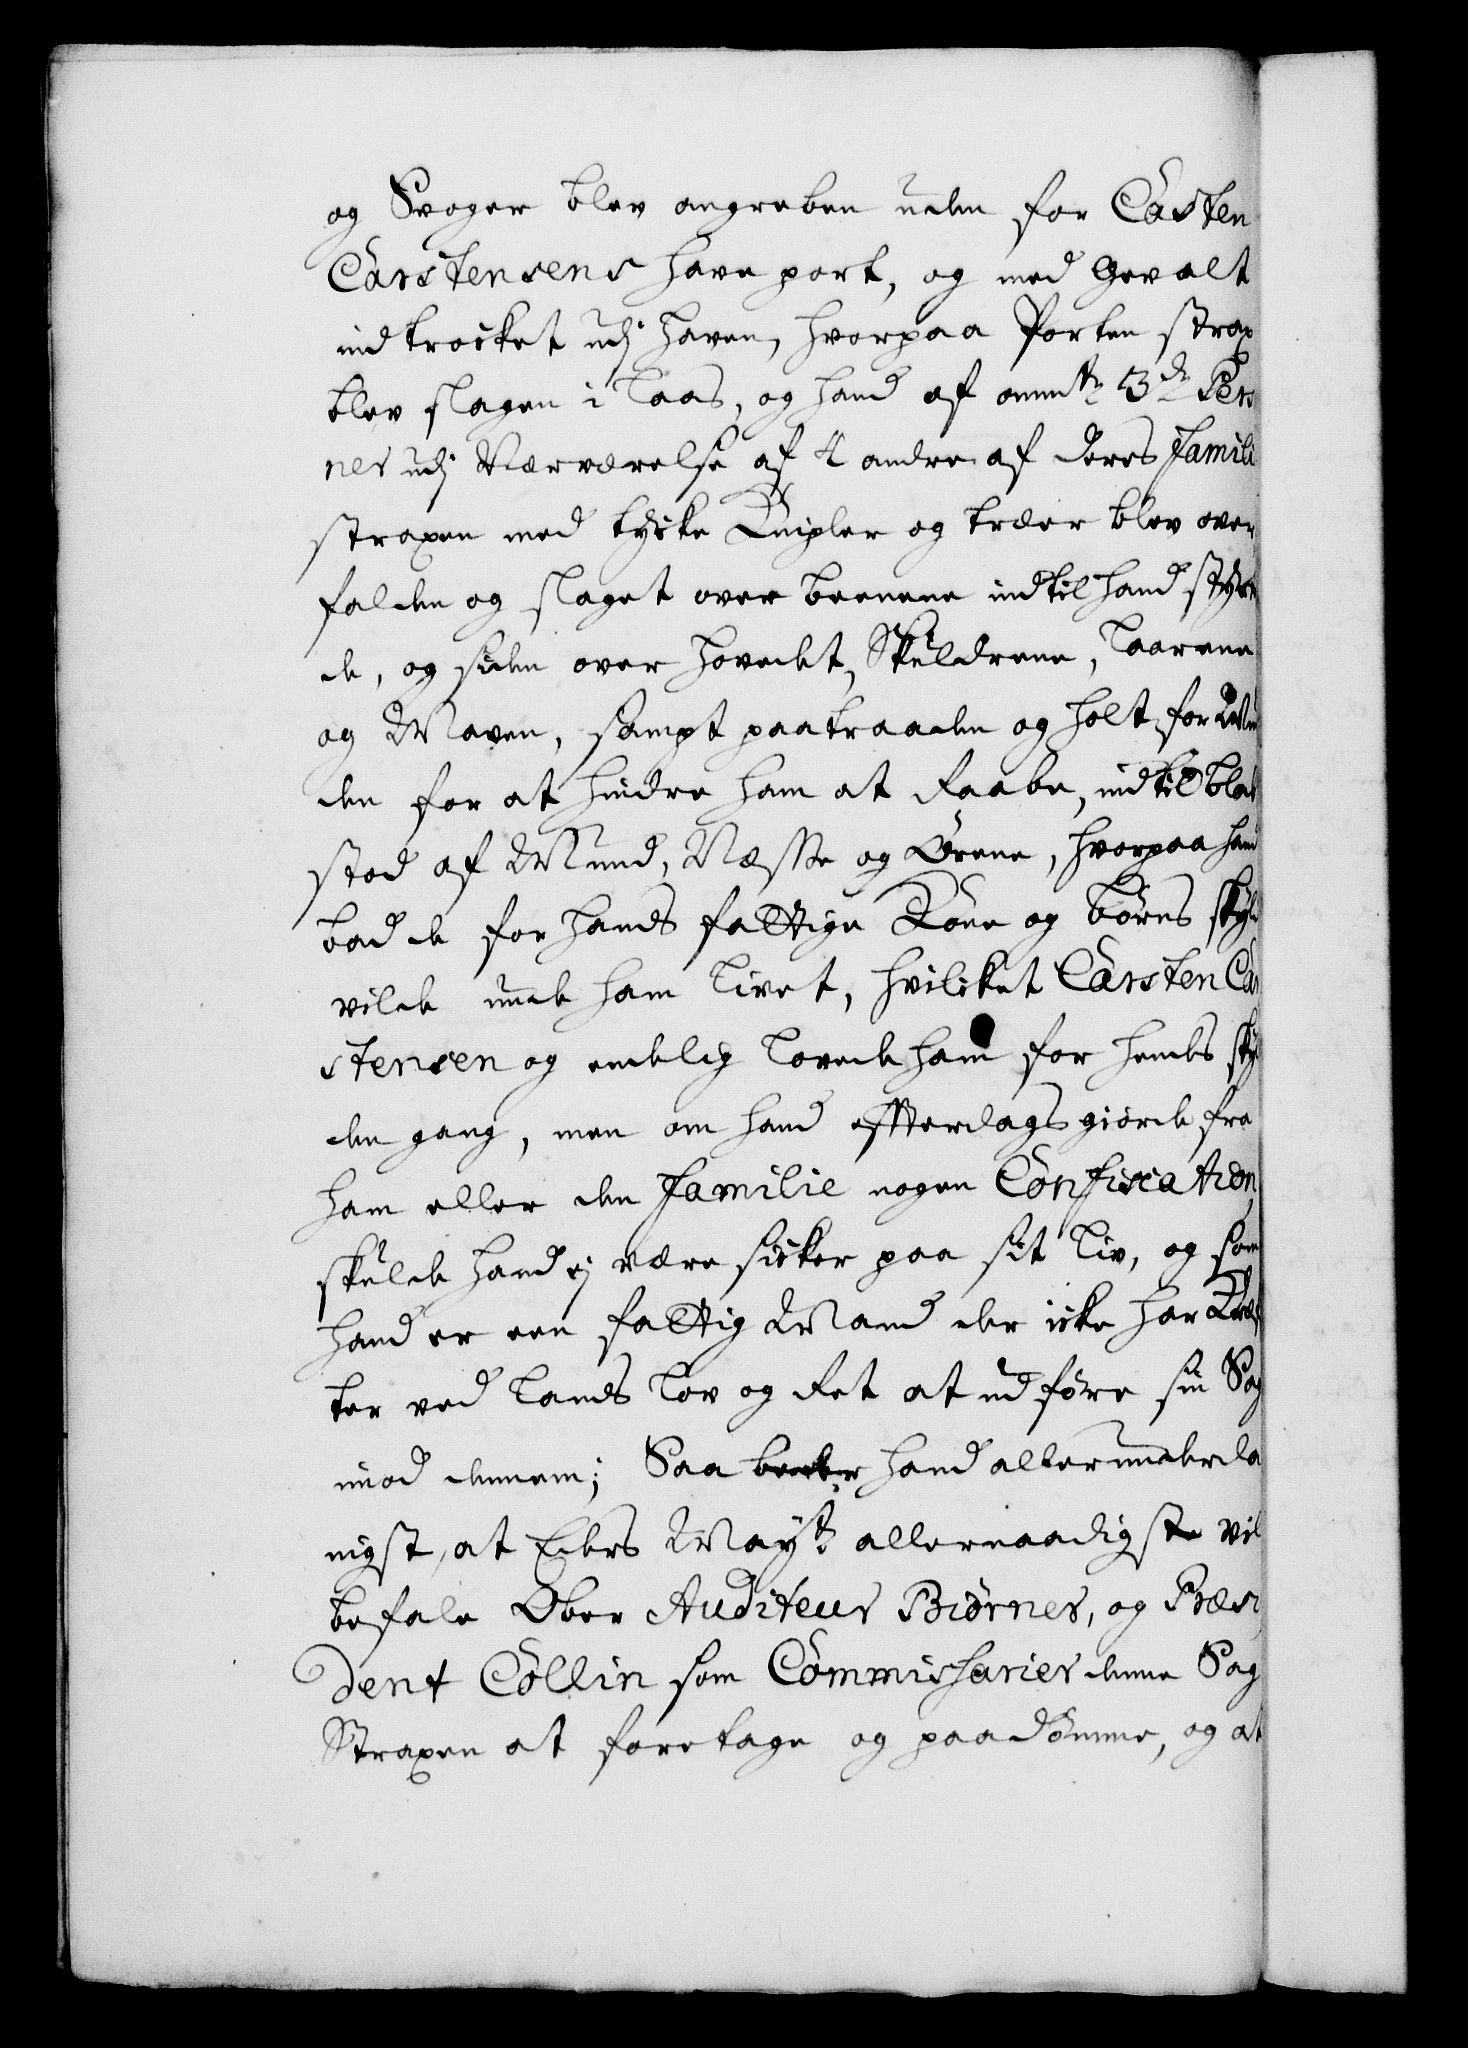 og Svoger blev angreben uden for Casten
Carstensens have port, og med Gevalt
indtrocket udj haven, hvorpaa Porten strax
blev slagen i laas, og hand af ommte 3de Perso
ner udj Nærværelse af 4 andre af deres Famili
straxen med tycke Knipler og træer blev over
falden og slaget over beenene indtil hand styrte
de, og siden over hovedet, Skuldrene, laarene
og Maven, sampt paatraaden og holt for Mun
den for at hindre ham at raabe, indtil blod
stod af Mund, Næsse og Ørene, hvorpaa hand
badede for hands fattige Kone og børns skyld
vilde unde ham livet, hvilcket Carsten Car
stensen og endelig lovede ham for hendes skyld
den gang, men om hand effterdags giorde fra
ham eller den Familie nogen Confiscation,
skulde hand ej være sicker paa sit liv, og som
hand er een fattig Mand der icke har Kræf
ter ved lands lov og Ret at udføre sin Sag
imod dennem; Saa beder hand allerunderda
nigst, at Eders Mayt allernaadigste vil
befale Ober Auditeur Biørner, og Præsi
dent Collin som Commissarier denne Sag
Straxen at foretage og paadømme, og at